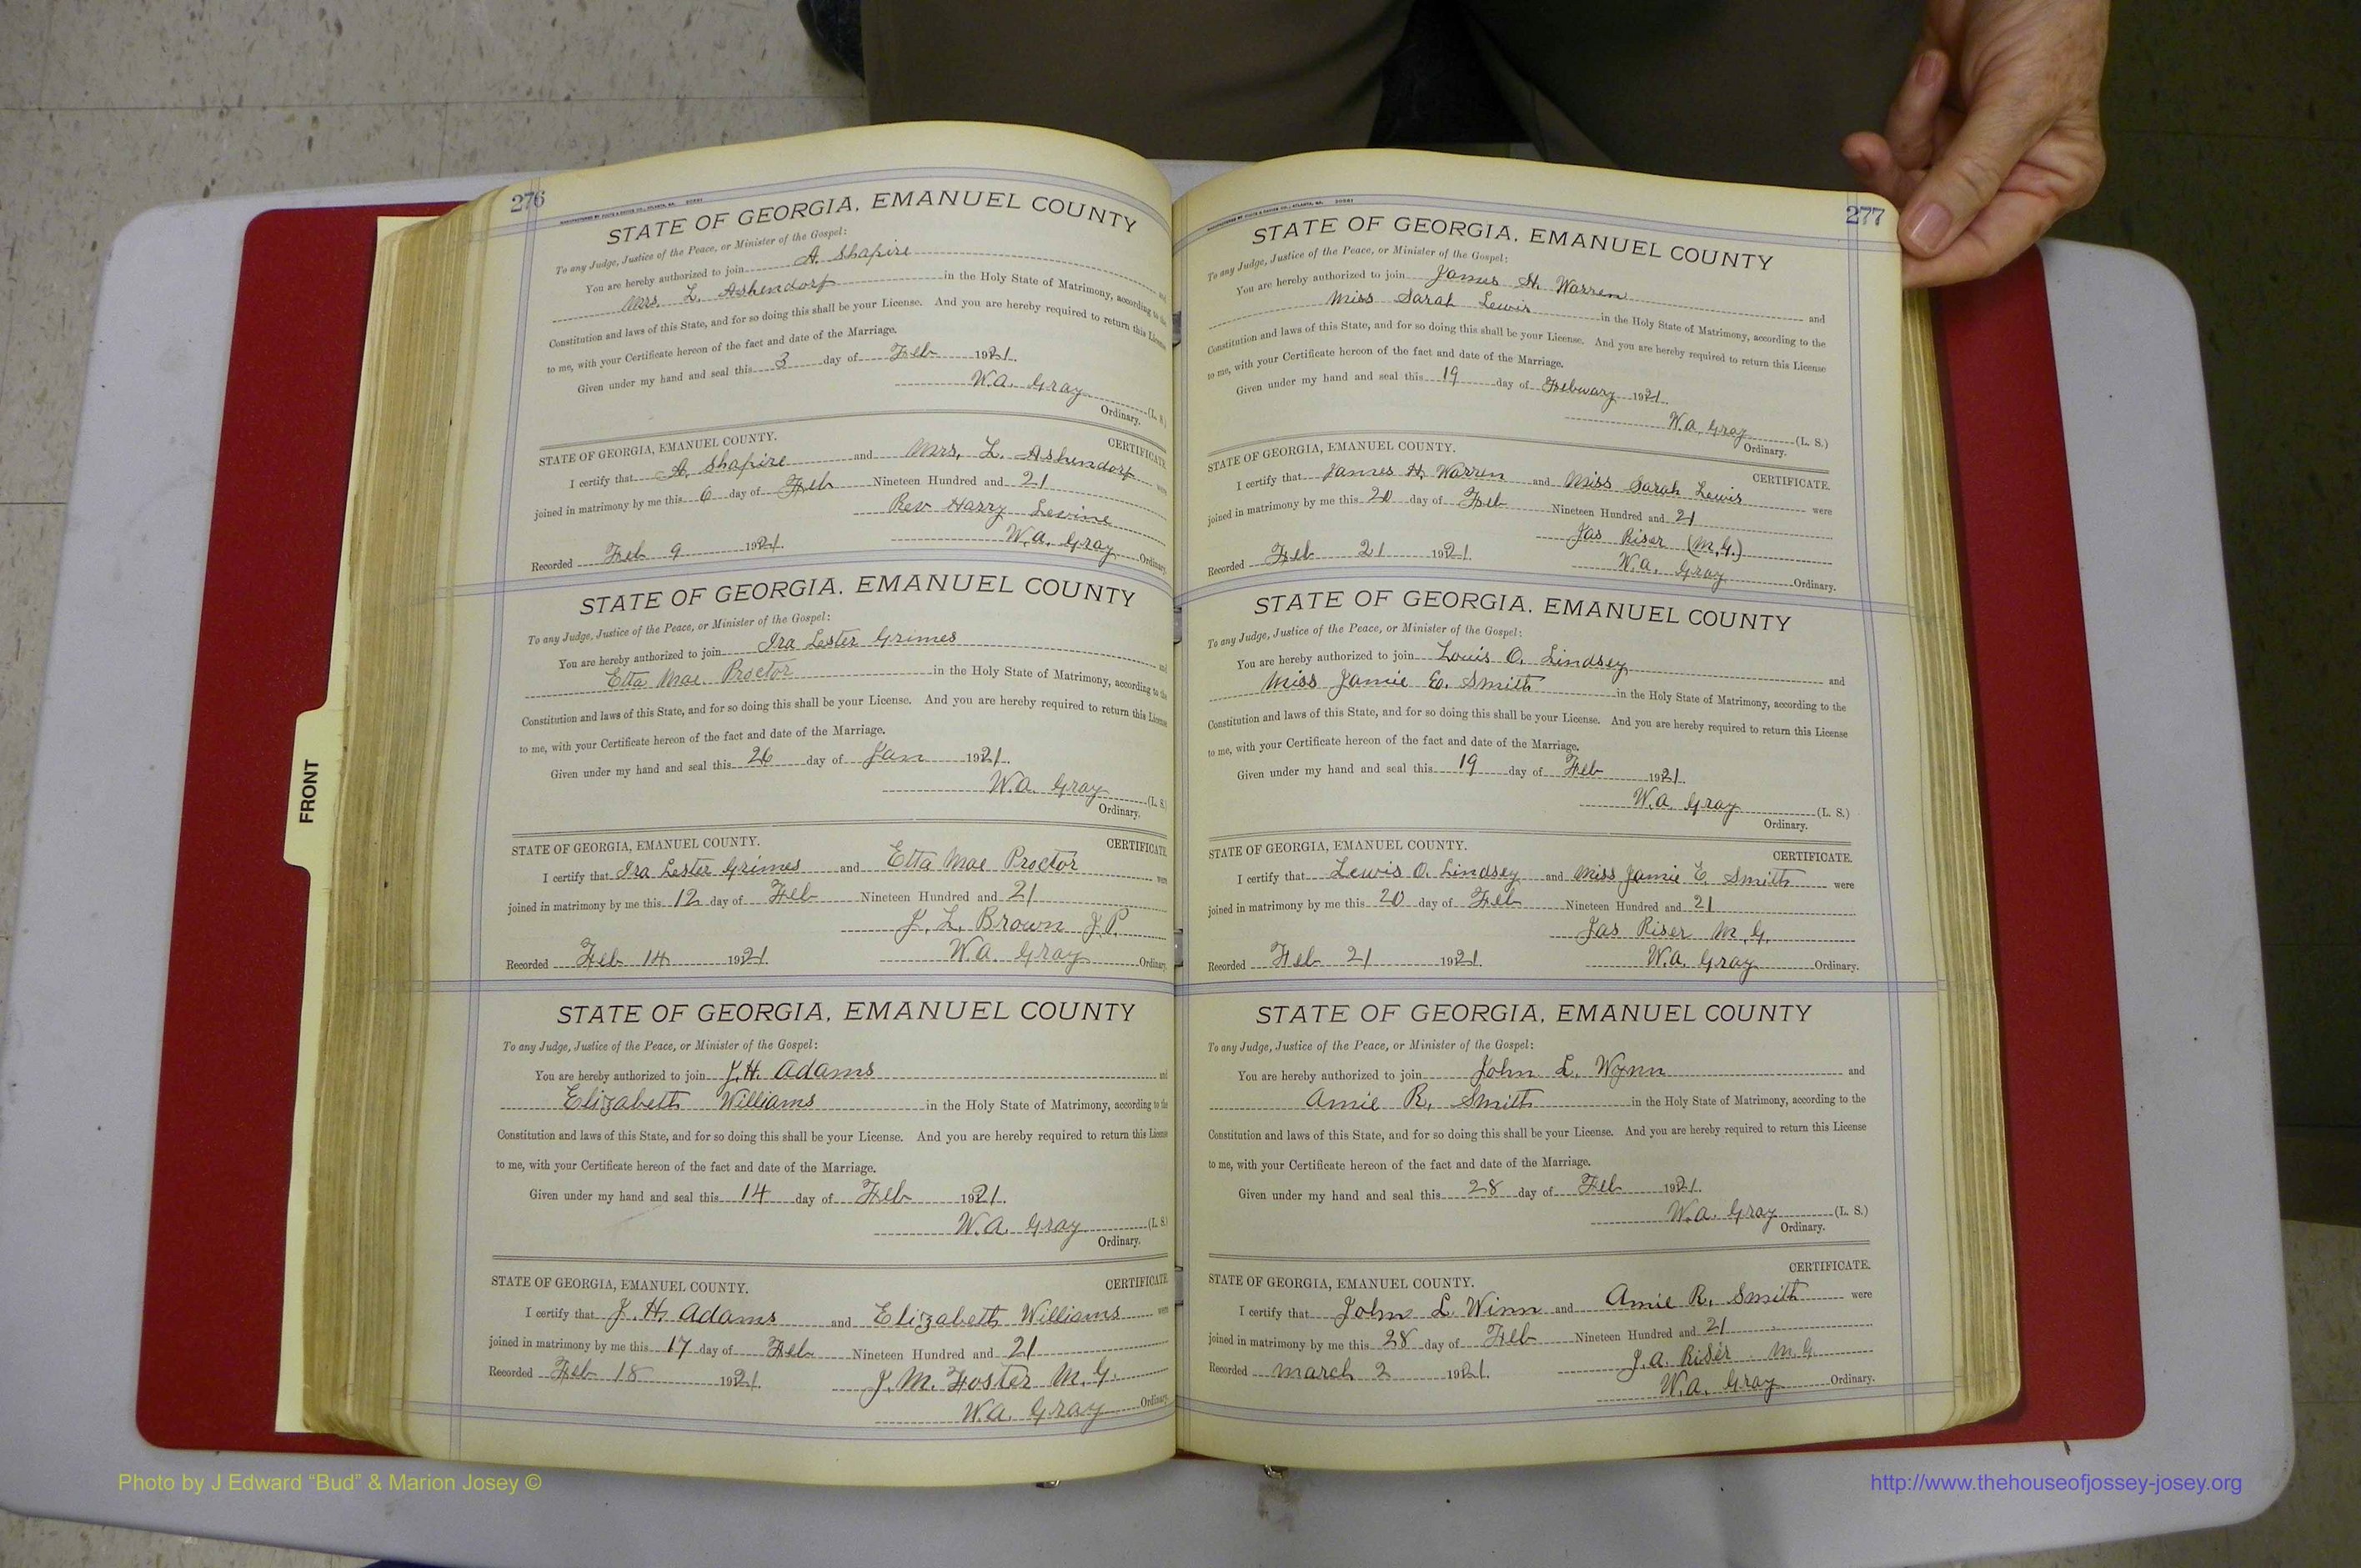 276
STATE OF GEORGIA, EMANUEL COUNTY
To any Judge, Justice of the Peace, or Minister of the Gospel:
You are hereby authorized to join A. Shapire and
Mrs. L. Ashendorf in the Holy State of Matrimony, according to the
Constitution and laws of this State, and for so doing this shall be your License. And you are hereby required to return this License
to me, with your Certificate hereon of the fact and date of the Marriage.
Given under my hand and seal this 3 day of Feb 1921.
W.A. Gray (L. S.)
Ordinary.
STATE OF GEORGIA, EMANUEL COUNTY. CERTIFICATE
I certify that A. Shapire and Mrs. L. Ashendorf were
joined in matrimony by me this 6 day of Feb Nineteen Hundred and 21
Rev Harry Levine
Recorded Feb 9 1921. W.A. Gray Ordinary.
STATE OF GEORGIA, EMANUEL COUNTY
To any Judge, Justice of the Peace, or Minister of the Gospel:
You are hereby authorized to join Ira Lester Grimes and
Etta Mae Proctor in the Holy State of Matrimony, according to the
Constitution and laws of this State, and for so doing this shall be your License. And you are hereby required to return this License
to me, with your Certificate hereon of the fact and date of the Marriage.
Given under my hand and seal this 26 day of Jan 1921.
W.A. Gray (L. S.)
Ordinary.
STATE OF GEORGIA, EMANUEL COUNTY. CERTIFICATE
I certify that Ira Lester Grimes and Etta Mae Proctor were
joined in matrimony by me this 12 day of Feb Nineteen Hundred and 21
J. L. Brown J.P.
Recorded Feb 14 1921. W.A. Gray Ordinary.
STATE OF GEORGIA, EMANUEL COUNTY
To any Judge, Justice of the Peace, or Minister of the Gospel:
You are hereby authorized to join J.H. Adams and
Elizabeth Williams in the Holy State of Matrimony, according to the
Constitution and laws of this State, and for so doing this shall be your License. And you are hereby required to return this License
to me, with your Certificate hereon of the fact and date of the Marriage.
Given under my hand and seal this 14 day of Feb 1921.
W.A. Gray (L. S.)
Ordinary.
STATE OF GEORGIA, EMANUEL COUNTY. CERTIFICATE
I certify that J. H. Adams and Elizabeth Williams were
joined in matrimony by me this 17 day of Feb Nineteen Hundred and 21
Recorded Feb 18 1921. J. M. Foster M.G.
W.A. Gray Ordinary.
277
STATE OF GEORGIA, EMANUEL COUNTY
To any Judge, Justice of the Peace, or Minister of the Gospel:
You are hereby authorized to join James H. Warren
Miss Sarah Lewis in the Holy State of Matrimony, according to the and
Constitution and laws of this State, and for so doing this shall be your License. And you are hereby required to return this License
to me, with your Certificate hereon of the fact and date of the Marriage.
Given under my hand and seal this 19 day of Febuary 1921.
W.A. Gray (L. S.)
Ordinary.
STATE OF GEORGIA, EMANUEL COUNTY. CERTIFICATE.
I certify that James H. Warren and Miss Sarah Lewis were
joined in matrimony by me this 20 day of Feb Nineteen Hundred and 21
Jas Riser (M.G.)
Recorded Feb 21 1921. W.A. Gray Ordinary.
STATE OF GEORGIA, EMANUEL COUNTY
To any Judge, Justice of the Peace, or Minister of the Gospel:
You are hereby authorized to join Louis O. Lindsey and
Miss Jamie E. Smith in the Holy State of Matrimony, according to the
Constitution and laws of this State, and for so doing this shall be your License. And you are hereby required to return this License
to me, with your Certificate hereon of the fact and date of the Marriage.
Given under my hand and seal this 19 day of Feb 1921.
W.A. Gray (L. S.)
Ordinary.
STATE OF GEORGIA, EMANUEL COUNTY. CERTIFICATE.
I certify that Lewis O. Lindsey and Miss Jamie E. Smith were
joined in matrimony by me this 20 day of Feb Nineteen Hundred and 21
Jas Riser M.G.
Recorded Feb 21 1921. W.A. Gray Ordinary.
STATE OF GEORGIA, EMANUEL COUNTY
To any Judge, Justice of the Peace, or Minister of the Gospel:
You are hereby authorized to join John L. Wynn and
Amie R. Smith in the Holy State of Matrimony, according to the
Constitution and laws of this State, and for so doing this shall be your License. And you are hereby required to return this License
to me, with your Certificate hereon of the fact and date of the Marriage.
Given under my hand and seal this 28 day of Feb 1921.
W.A. Gray (L. S.)
Ordinary.
CERTIFICATE.
STATE OF GEORGIA, EMANUEL COUNTY.
I certify that John L. Winn and Amie R. Smith were
joined in matrimony by me this 28 day of Feb Nineteen Hundred and 21
Recorded march 2 1921. J.A. Riser M.G.
W.A. Gray Ordinary.
FRONT
Photo by J Edward “Bud” & Marion Josey ©
http://www.thehouseofjossey-josey.org